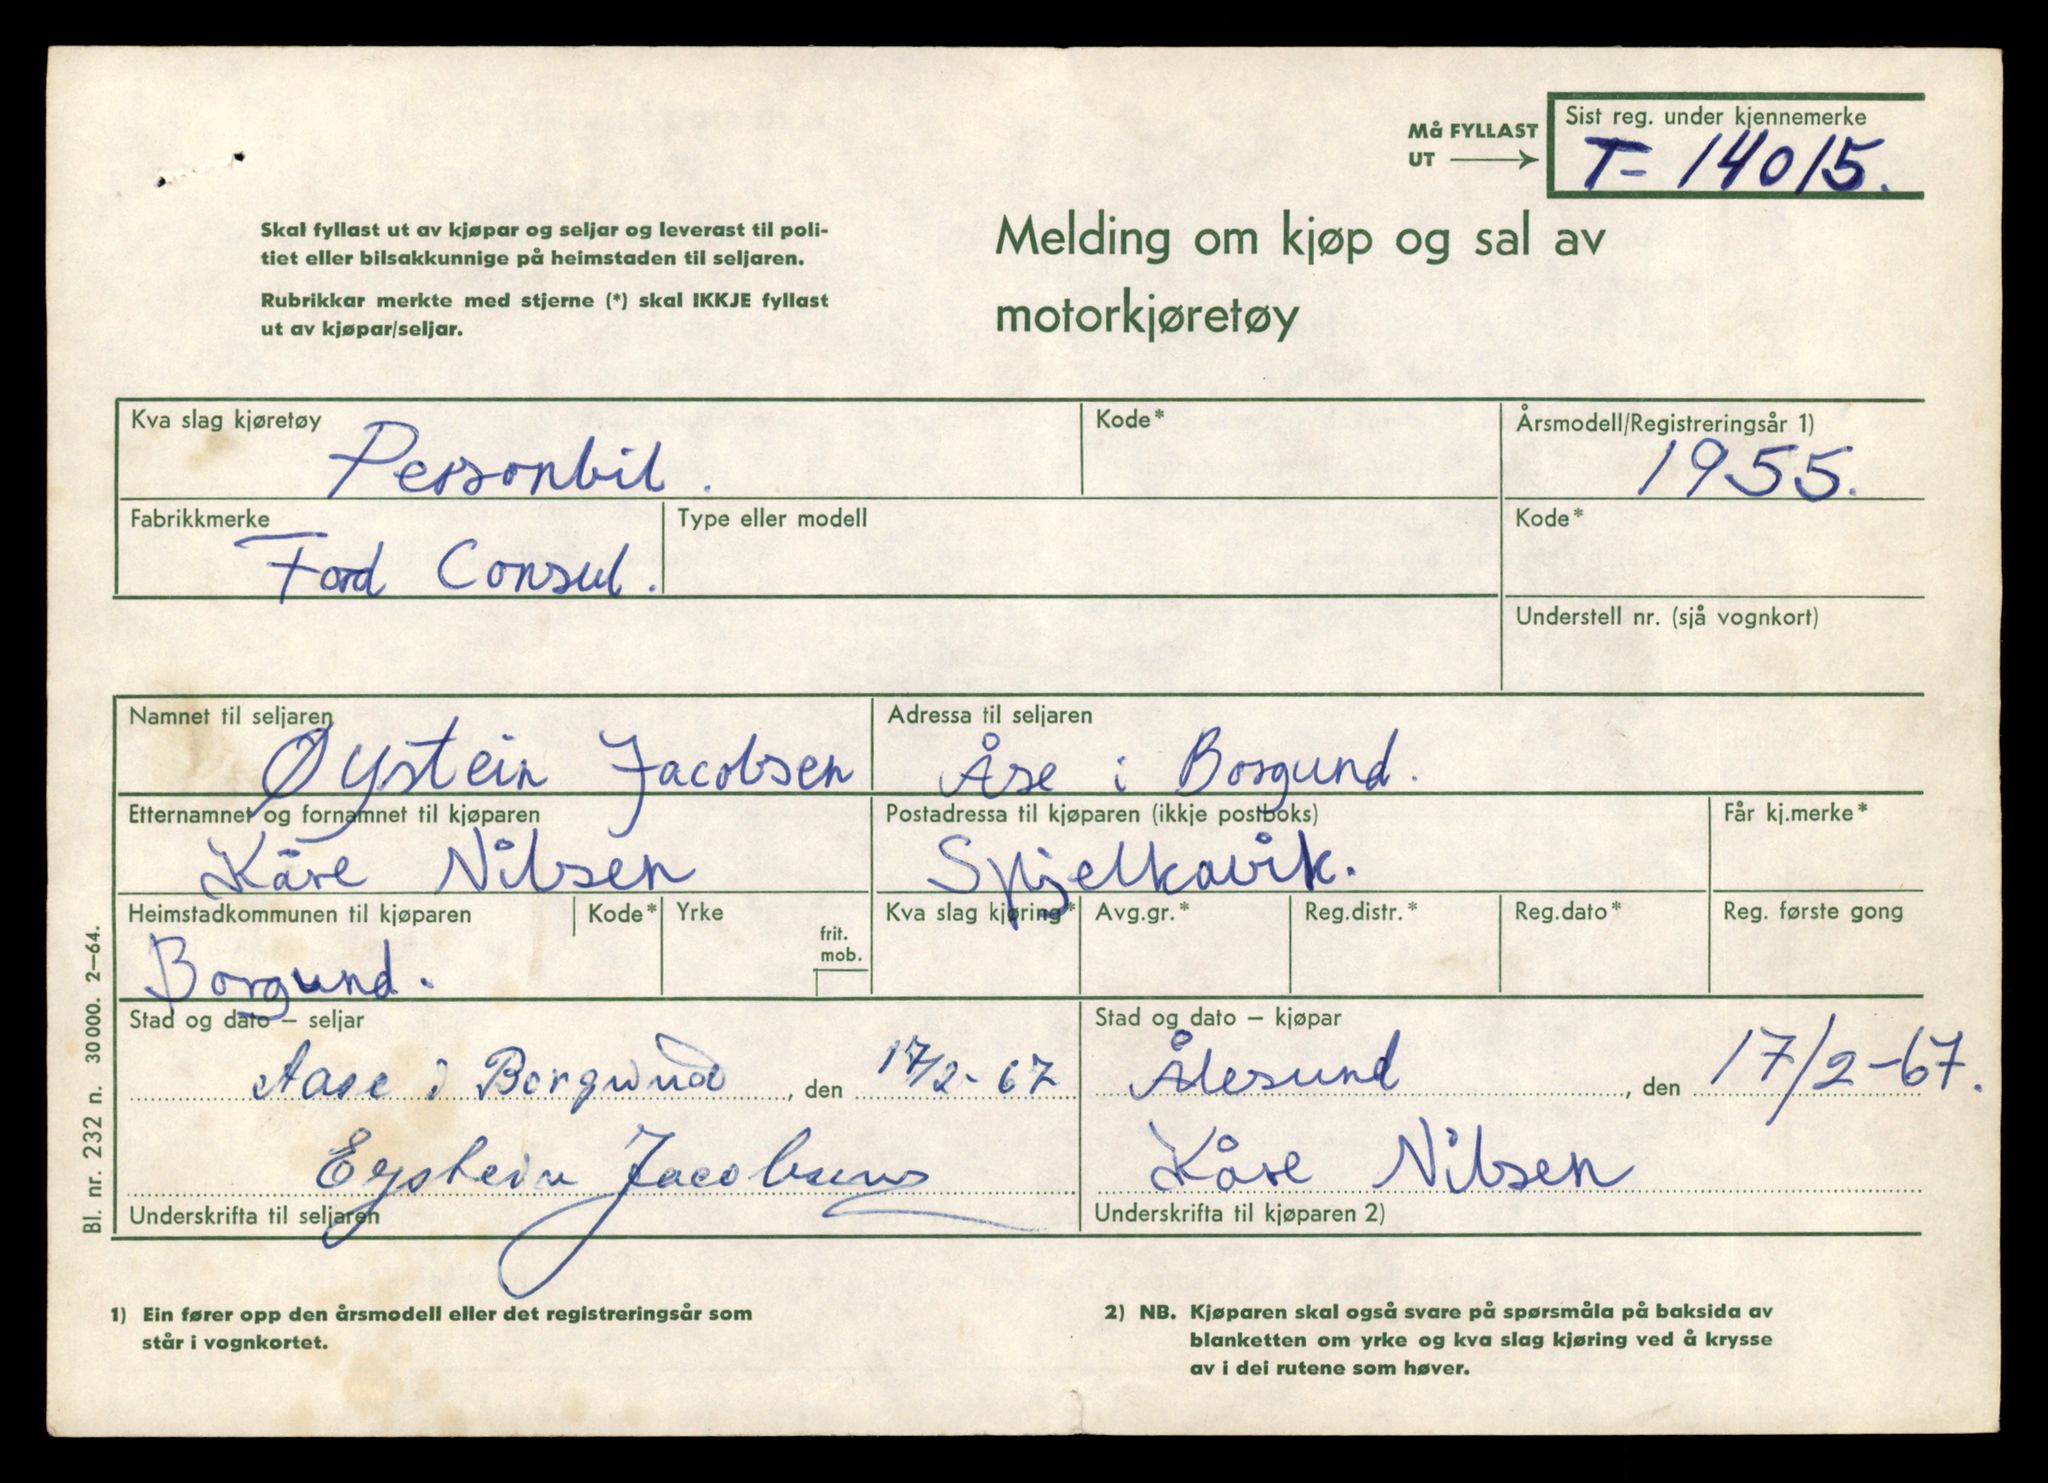 Må FYLLAST
UT
Sist reg. under kjennemerke
T- 14015.
Skal fyllast ut av kjøpar og seljar og leverast til poli-
tiet eller bilsakkunnige på heimstaden til seljaren.
Rubrikkar merkte med stjerne (*) skal IKKJE fyllast
ut av kjøpar/seljar.
Melding om kjøp og sal av
motorkjøretøy
Kva slag kjøretøy
Personbil.
Kode*
Årsmodell/Registreringsår 1)
1955.
Fabrikkmerke
Ford Consul.
Type eller modell
Kode*
Understell nr. (sjå vognkort)
Namnet til seljaren
Øystein Jacobsen
Adressa til seljaren
Åse i Borgund.
Etternamnet og fornamnet til kjøparen
Kåre Nilsen
Postadressa til kjøparen (ikkje postboks)
Spjelkavik.
Får kj.merke*
Heimstadkommunen til kjøparen
Borgund.
Kode*
Yrke
frit.
mob.
Kva slag kjøring*
Avg.gr.*
Reg.distr.*
Reg.dato*
Reg. første gong
Stad og dato – seljar
Aase i Borgund, den 17/2-67
Eystein Jacobsen
Underskrifta til seljaren
Stad og dato – kjøpar
Ålesund, den 17/2-67.
Kåre Nilsen
Underskrifta til kjøparen 2)
Bl. nr. 232 n. 30 000. 2–64.
1) Ein fører opp den årsmodell eller det registreringsår som
står i vognkortet.
2) NB. Kjøparen skal også svare på spørsmåla på baksida av
blanketten om yrke og kva slag kjøring ved å krysse
av i dei rutene som høver.